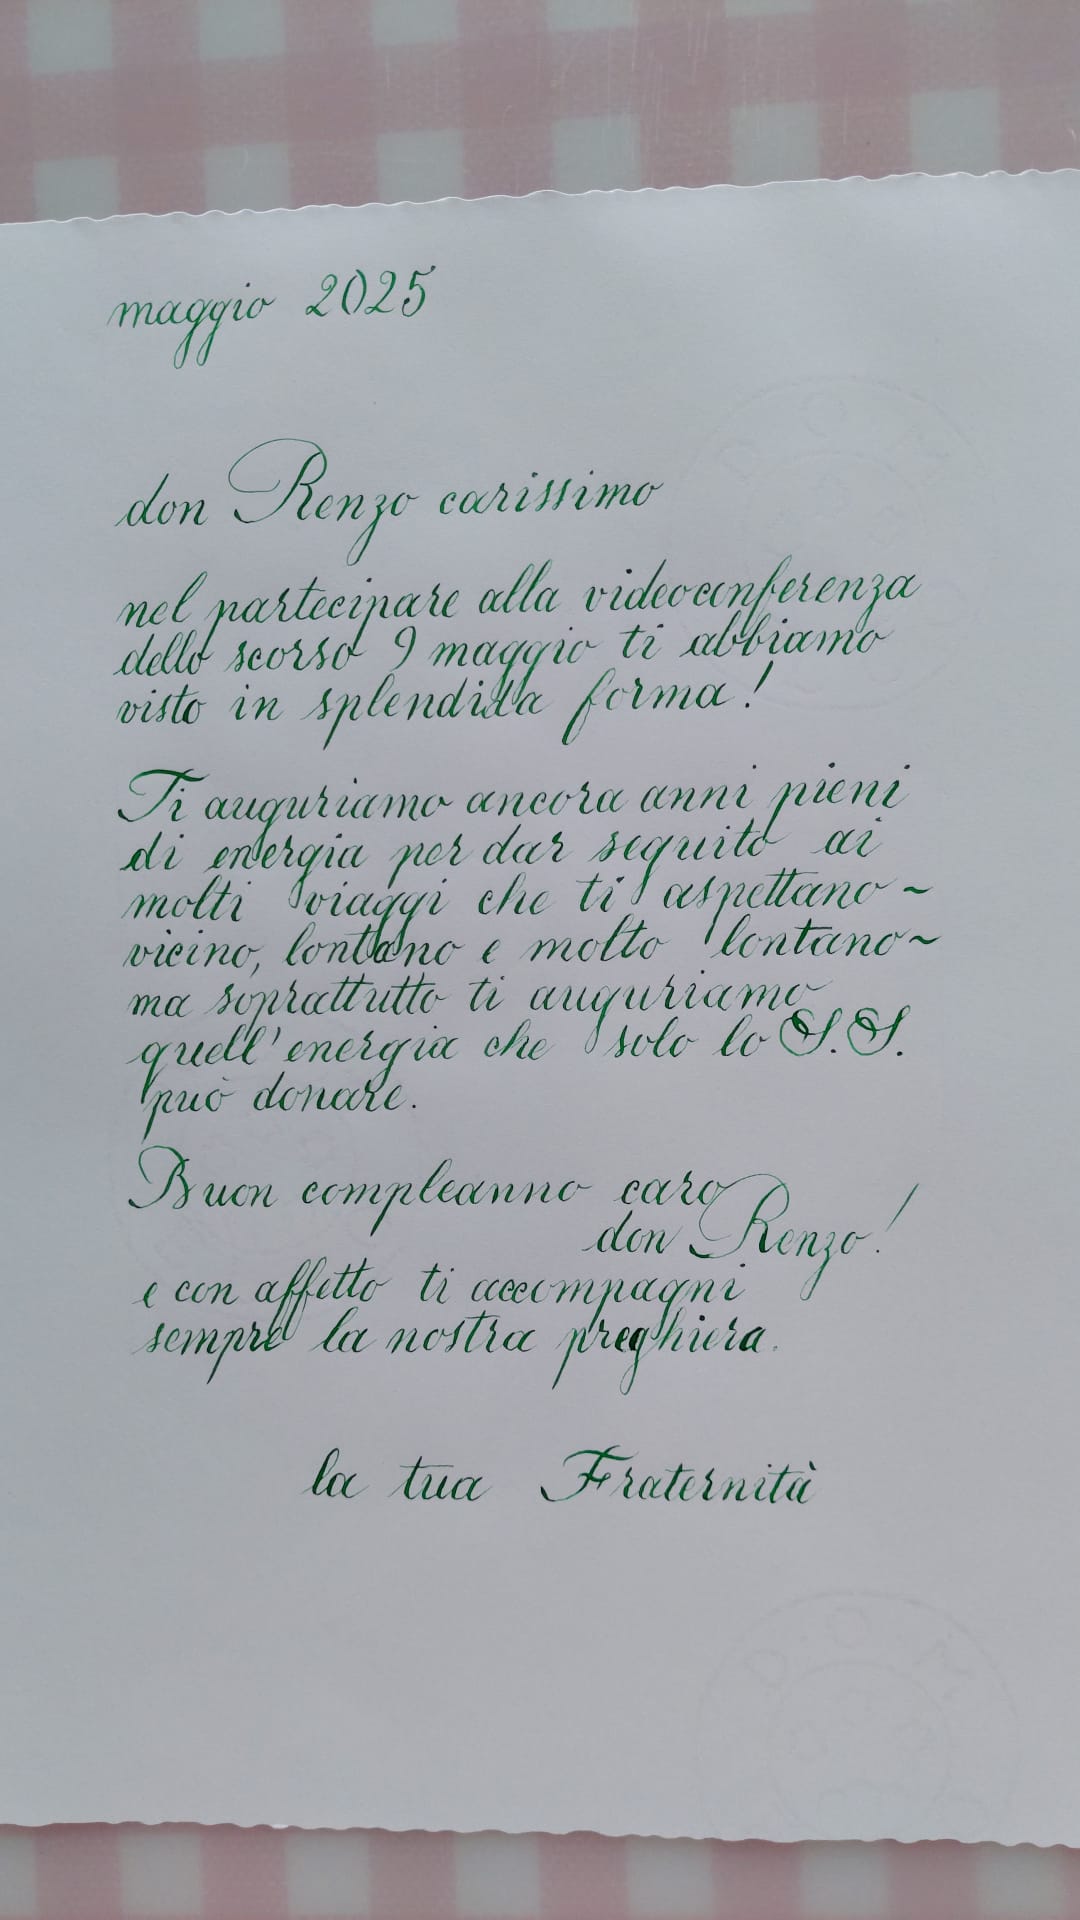 maggio 2025
don Renzo carissimo
nel partecipare alla videoconferenza
dello scorso 9 maggio ti abbiamo
visto in splendida forma!
Ti auguriamo ancora anni pieni
di energia per dar seguito ai
molti viaggi che ti aspettano ~
vicino, lontano e molto lontano ~
ma soprattutto ti auguriamo
quell'energia che solo lo S.S.
può donare.
Buon compleanno caro
don Renzo!
e con affetto ti accompagni
sempre la nostra preghiera.
la tua Fraternità